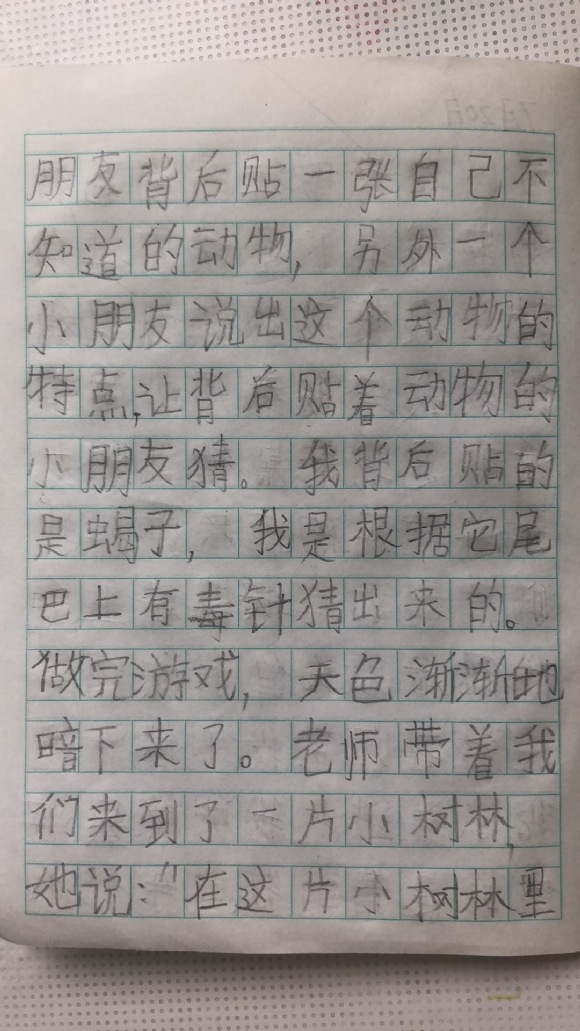 朋友背后贴一张自己不
知道的动物,另外一个
小朋友说出这个动物的
特点,让背后贴着动物的
小朋友猜。我背后贴的
是蝎子,我是根据它尾
巴上有毒针猜出来的。
做完游戏,天色渐渐地
暗下来了。老师带着我
们来到了一片小树林,
她说:"在这片小树林里